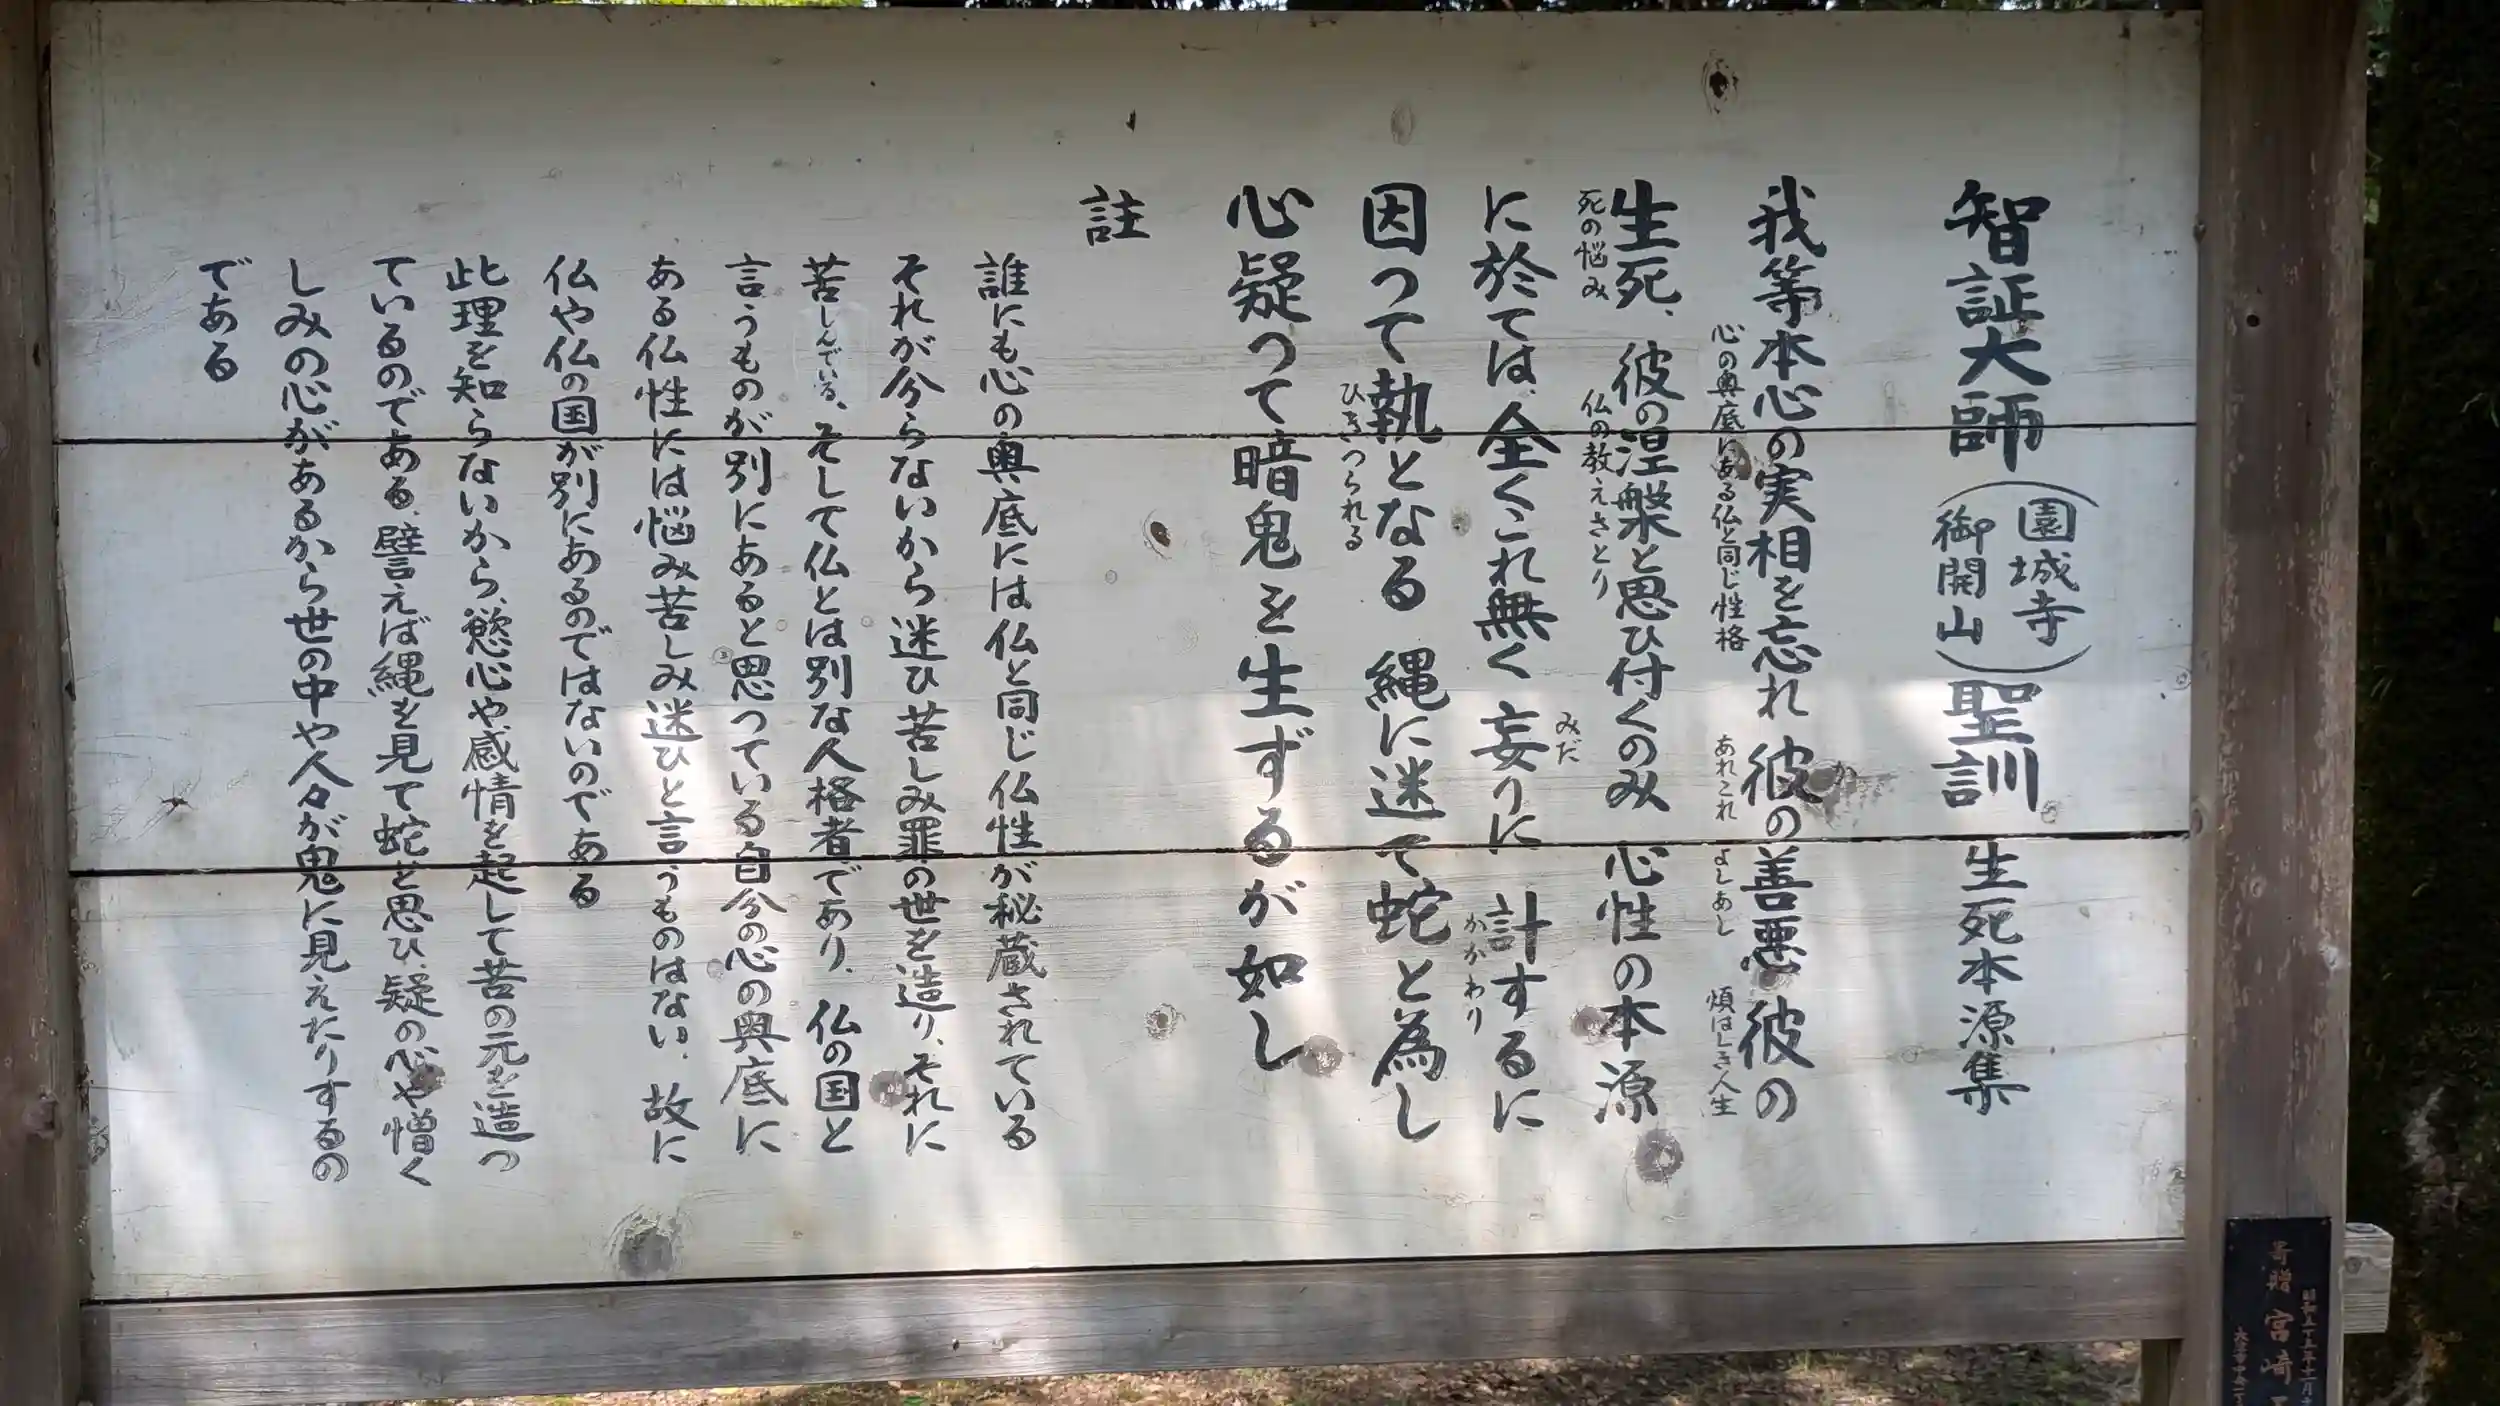 智証大師(園城寺御開山)聖訓 生死本源集
我等本心の実相を忘れ 彼の善悪 彼の
心の奥底にある仏と同じ性格 あれこれ か よしあし 煩はしき人生
生死、彼の涅槃と思ひ付くのみ 心性の本源
死の悩み 仏の教えさとり
に於ては、全くこれ無く 妄りに 計するに
みだ かかわり
因つて執となる 縄に迷て蛇と為し
ひきつられる
心疑つて暗鬼を生ずるが如し
註
誰にも心の奥底には仏と同じ仏性が秘蔵されている
それが分らないから迷ひ苦しみ罪の世を造り、それに
苦しんでいる、そして仏とは別な人格者であり、仏の国と
言うものが別にあると思つている自分の心の奥底に
ある仏性には悩み苦しみ迷ひと言うものはない、故に
仏や仏の国が別にあるのではないのである
此理を知らないから、慾心や感情を起して苦の元を造つ
ているのである、譬えば縄を見て蛇と思ひ、疑の心や憎く
しみの心があるから世の中や人々が鬼に見えたりするの
である
寄贈 宮崎